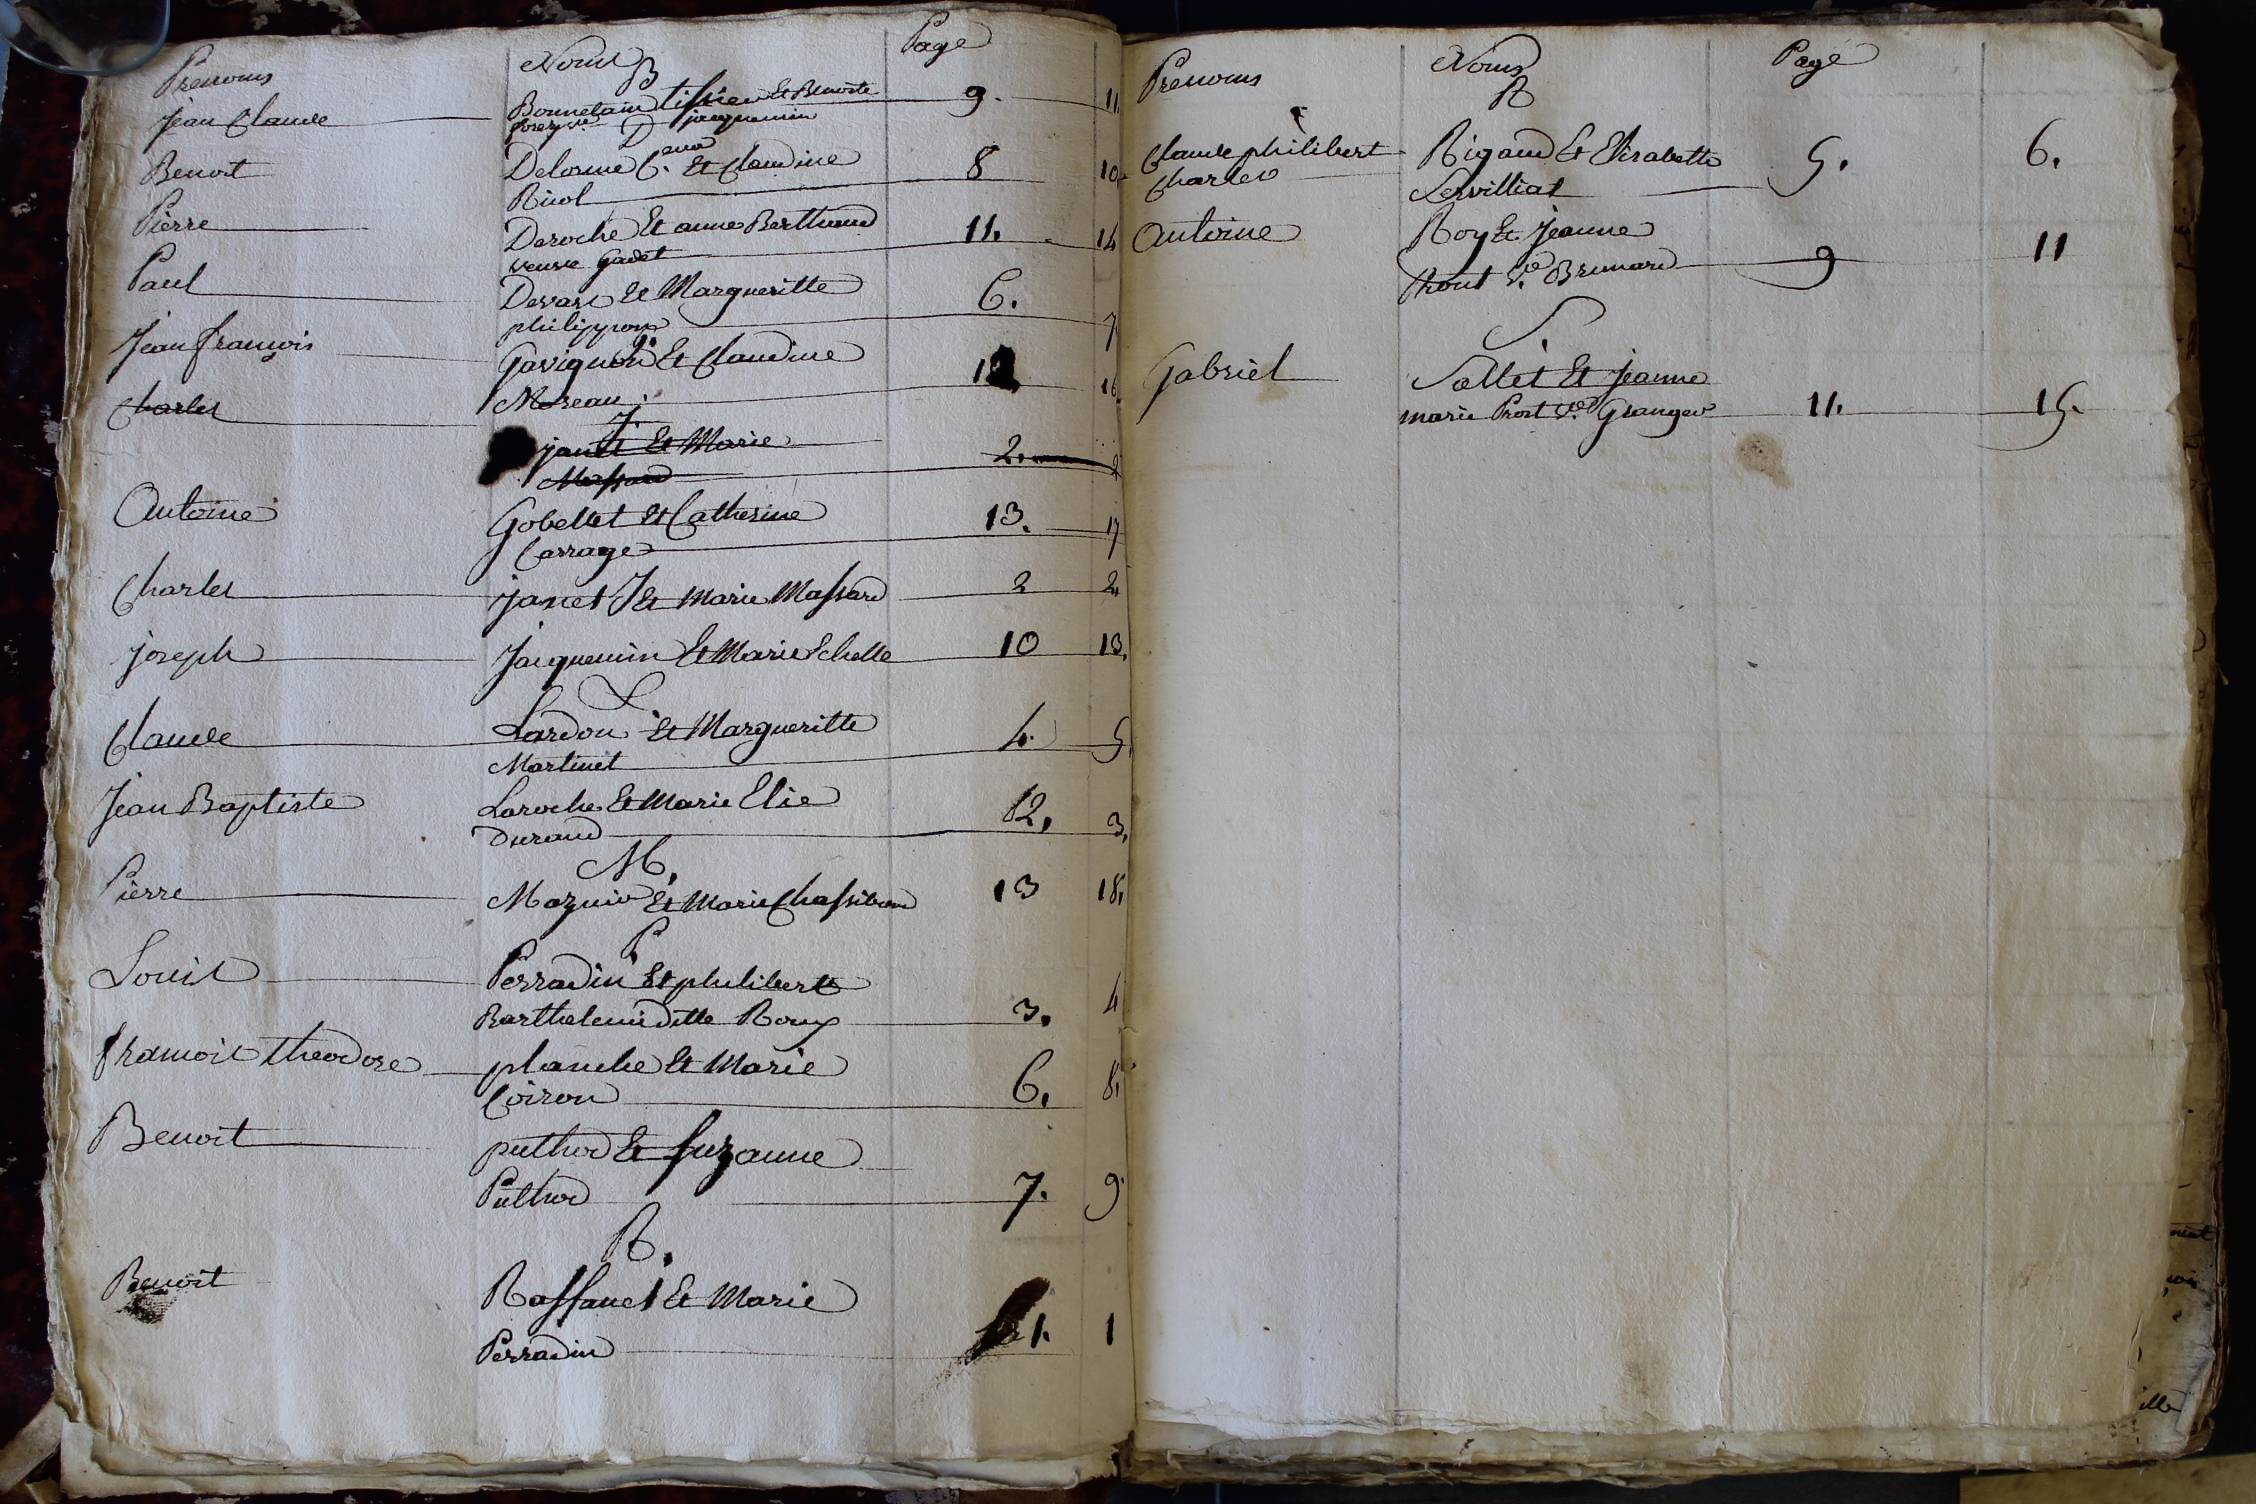 Prenoms Noms Page
B
Jean Claude Bonnetain tissier Et Benoite 9. 11.
jacquemin
D
Benoit Delorme C. Et Claudine
Ricol 8 10
Pierre Deroche Et anne Berthaud
veuve Gadet 11. 14
Paul Devard Et Margueritte
philippon 6. 7
G.
Jean françois Gavignon Et Claudine
Moreau 12 16
J.
Charles janet Et Marie
Massard 2. 2
Antoine Gobellet Et Catherine
Carrage 13. 17
Charles janet Et Marie Massard 2 2
joseph Jacquemin Et Marie Echelle 10 13.
L
Claude Lardon Et Margueritte
Martinet 4. 5
Jean Baptiste Laroche Et Marie Elie
Durand 12. 3.
M.
Pierre Maznio Et Marie 13 18.
P
Louis Perradin Et philiberte
Barthelemi ditte Roux 3. 4
francois theodore planche Et Marie
Coiron 6. 8.
Benoit puthod Et suzanne
Puthod 7. 9.
R.
Benoit Raffanet Et Marie
Perradin 1. 1
Prenoms Noms Page
R
Claude philibert Rigaud Et Elisabette
Charles 5. 6.
Antoine Roy Et Jeanne
Prost Ve. Brunard 9 11
S
Gabriel Sallet Et Jeanne
marie Prost Ve. Granger 11. 15.